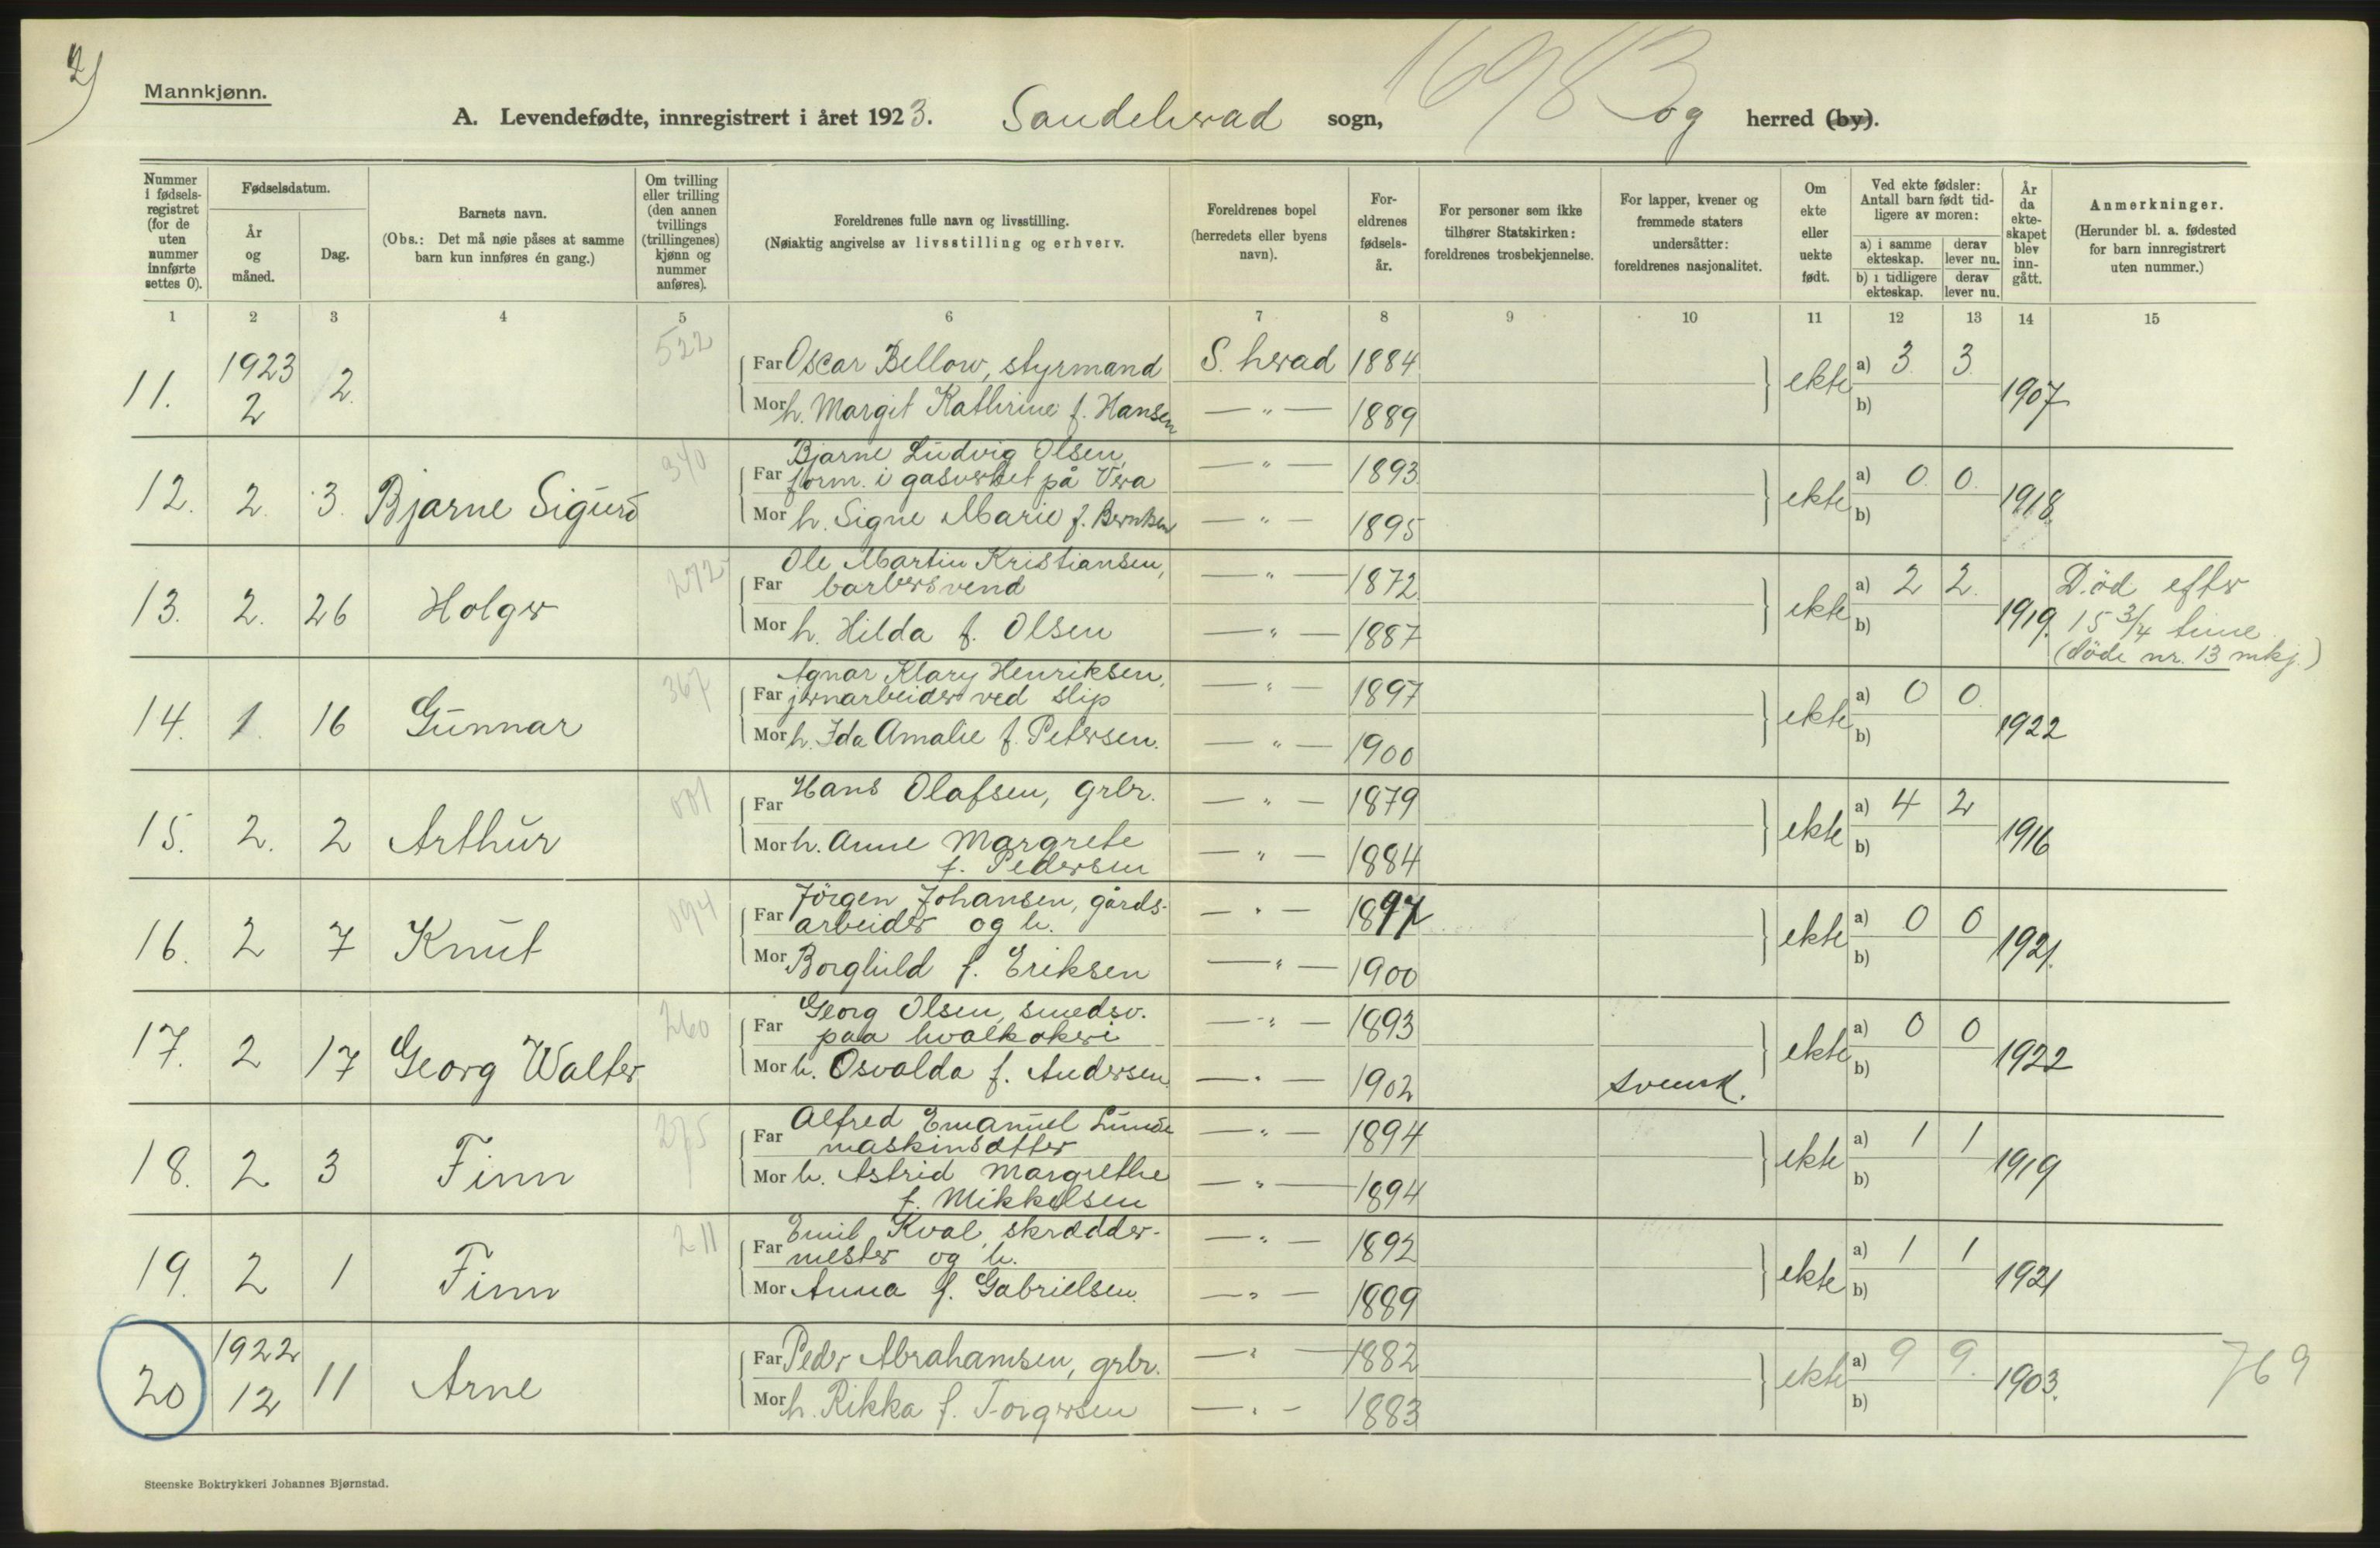 2)
Mannkjønn.
A. Levendefødte, innregistrert i året 1923. Sandeherad sogn, og herred (by).
16983
Nummer i fødselsregistret (for de uten nummer innførte settes 0).
Fødselsdatum.
År og måned.
Dag.
Barnets navn.
(Obs.: Det må nøie påses at samme barn kun innføres én gang.)
Om tvilling eller trilling (den annen tvillings (trillingenes) kjønn og nummer anføres).
Foreldrenes fulle navn og livsstilling.
(Nøiaktig angivelse av livsstilling og erhverv.
Foreldrenes bopel (herredets eller byens navn).
Foreldrenes fødselsår.
For personer som ikke tilhører Statskirken: foreldrenes trosbekjennelse.
For lapper, kvener og fremmede staters undersåtter: foreldrenes nasjonalitet.
Om ekte eller uekte født.
Ved ekte fødsler: Antall barn født tidligere av moren:
a) i samme ekteskap.
derav lever nu.
b) i tidligere ekteskap.
derav lever nu.
År da ekteskapet blev inngått.
Anmerkninger.
(Herunder bl. a. fødested for barn innregistrert uten nummer.)
1 2 3 4 5 6 7 8 9 10 11 12 13 14 15
11. 1923 2 2. 522
Far Oscar Bellow, styrmand S. herad 1884
Mor h. Margit Kathrine f. Hansen — " — 1889
ekte a) 3 3 b) 1907
12. 2. 3. Bjarne Sigurd 340
Bjarne Ludvig Olsen,
Far form. i gasverket på Vera — " — 1893
Mor h. Signe Marie f. Berntsen — " — 1895
ekte a) 0 0 b) 1918.
13. 2. 26 Holger 272
Ole Martin Kristiansen,
Far barbersvend — " — 1872
Mor h. Hilda f. Olsen — " — 1887
ekte a) 2 2. b) 1919.
Död efter
15 3/4 time
(döde nr. 13 mkj.)
14. 1. 16 Gunnar 367
Agnar Klary Henriksen,
Far jernarbeider ved slip — " — 1897
Mor h. Ida Amalie f. Petersen. — " — 1900
ekte a) 0 0 b) 1922
15. 2. 2 Arthur 001
Far Hans Olafsen, grbr. — " — 1879
Mor h. Anne Margrete
f. Pedersen — " — 1884
ekte a) 4 2 b) 1916
16. 2 7 Knut 094
Jörgen Johansen, gårds-
Far arbeider og h. — " — 1897
Mor Borghild f. Eriksen — " — 1900
ekte a) 0 0 b) 1921.
17. 2 17 Georg Walter 260
Georg Olsen, smedsv.
Far paa hvalkokeri — " — 1893
Mor h. Osvalda f. Andersen. — " — 1902 svensk.
ekte a) 0 0 b) 1922
18. 2 3 Finn 275
Alfred Emanuel Lunde
Far maskinsætter — " — 1894
Mor h. Astrid Margrethe
f. Mikkelsen — " — 1894
ekte a) 1 1 b) 1919
19. 2 1 Finn 211
Emil Kval, skrædder-
Far mester og h. — " — 1892
Mor Anna f. Gabrielsen. — " — 1889
ekte a) 1 1 b) 1921
20 1922 12 11 Arne
Far Peder Abrahamsen, grbr. — " — 1882
Mor h. Rikka f. Torgersen — " — 1883
ekte a) 9 9. b) 1903.
769
Steenske Boktrykkeri Johannes Bjørnstad.